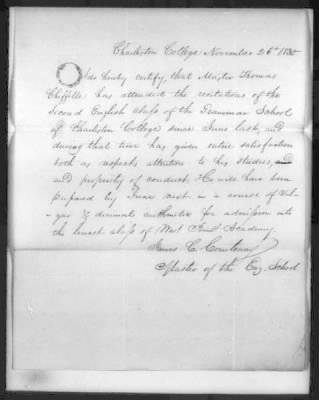 Charleston College November 26th 1830
I do hereby certify, that Master Thomas
Chiffelle has attended the recitations of the
Second English class of the Grammar School
of Charleston College since June last, and
during that time has given entire satisfaction
both as respects attention to his studies, and
and propriety of conduct. He will have been
prepared by June next in a course of Vul-
gar & decimal arithmetic for admission into
the lowest class of West Point Academy
James C. Courtenay
Master of the Eng. School